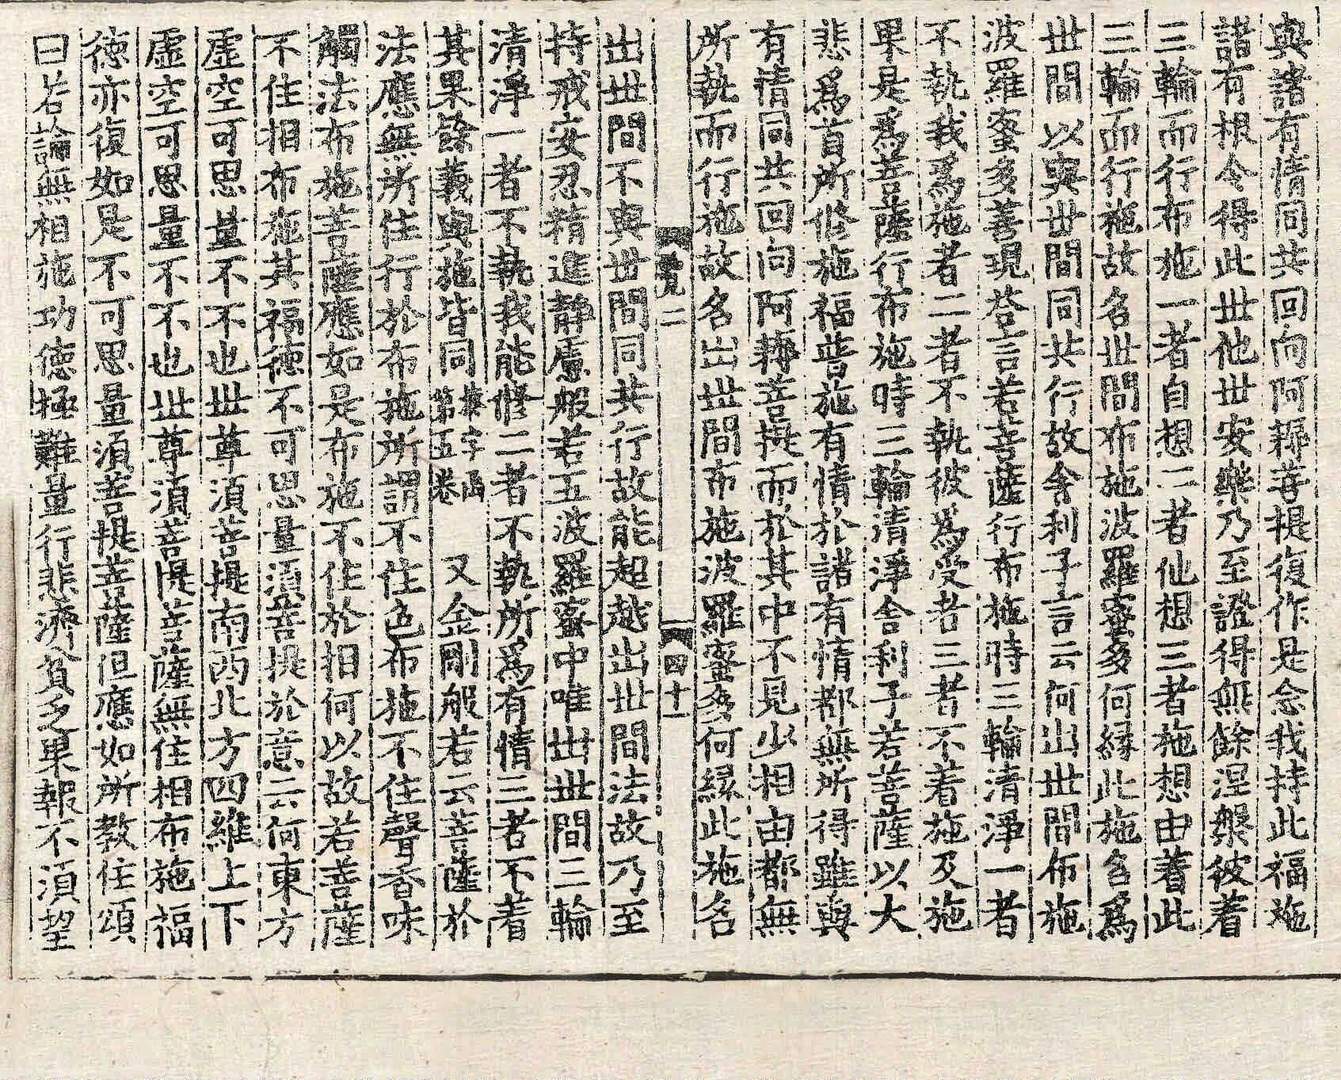 與諸有情同共回向阿耨菩提復作是念我持此福施
諸有根令得此世他世安樂乃至證得無餘涅槃彼着
三輪而行布施一者自想二者他想三者施想由着此
三輪而行施故名世間布施波羅蜜多何縁此施名爲
世間以與世間同共行故舍利子言云何出世間布施
波羅蜜多善現答言若菩薩行布施時三輪清淨一者
不執我爲施者二者不執彼爲受者三者不着施及施
果是爲菩薩行布施時三輪清淨舍利子若菩薩以大
悲爲首所修施福普施有情於諸有情都無所得雖與
有情同共回向阿耨菩提而於其中不見少相由都無
所執而行施故名出世間布施波羅蜜多何縁此施名
二
四十一
出世間不與世間同共行故能超越出世間法故乃至
持戒安忍精進靜慮般若五波羅蜜中唯出世間三輪
清淨一者不執我能修二者不執所爲有情三者不着
其果餘義與施皆同 第五卷 又金剛般若云菩薩於
法應無所住行於布施所謂不住色布施不住聲香味
觸法布施菩薩應如是布施不住於相何以故若菩薩
不住相布施其福德不可思量須菩提於意云何東方
虛空可思量不不也世尊須菩提南西北方四維上下
虛空可思量不不也世尊須菩提菩薩無住相布施福
德亦復如是不可思量須菩提菩薩但應如所教住頌
曰若論無相施功德極難量行悲濟貧乏果報不須望